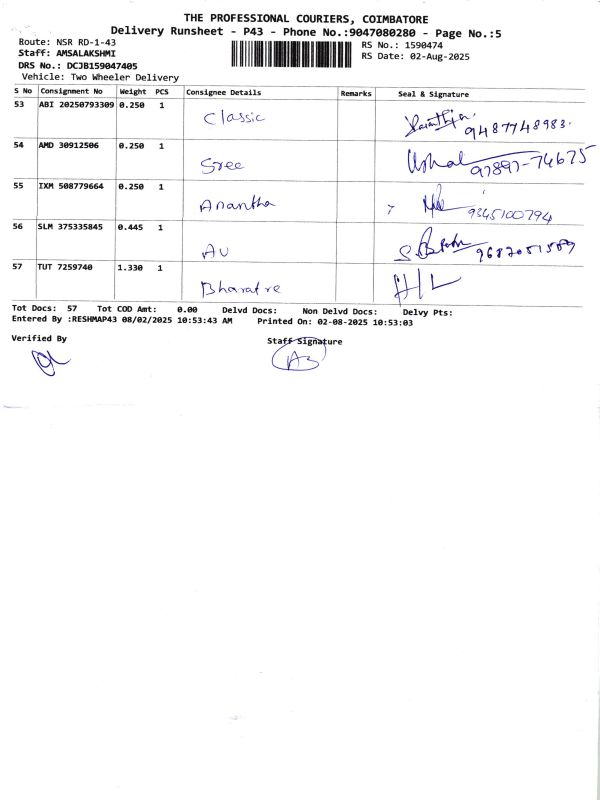 THE PROFESSIONAL COURIERS, COIMBATORE
Delivery Runsheet - P43 - Phone No.:9047080280 - Page No.:5
Route: NSR RD-1-43
RS No.: 1590474
Staff: AMSALAKSHMI
RS Date: 02-Aug-2025
DRS No.: DCJB159047405
Vehicle: Two Wheeler Delivery
S No Consignment No Weight PCS Consignee Details Remarks Seal & Signature
53 ABI 20250793309 0.250 1 Classic 9487748983
54 AMD 30912506 0.250 1 Sree 97897-74675
55 IXM 508779664 0.250 1 Anantha 9345100794
56 SLM 375335845 0.445 1 AU
57 TUT 7259740 1.330 1
Tot Docs: 57 Tot COD Amt: 0.00 Delvd Docs: Non Delvd Docs: Delvy Pts:
Entered By :RESHMAP43 08/02/2025 10:53:43 AM Printed On: 02-08-2025 10:53:03
Verified By Staff Signature